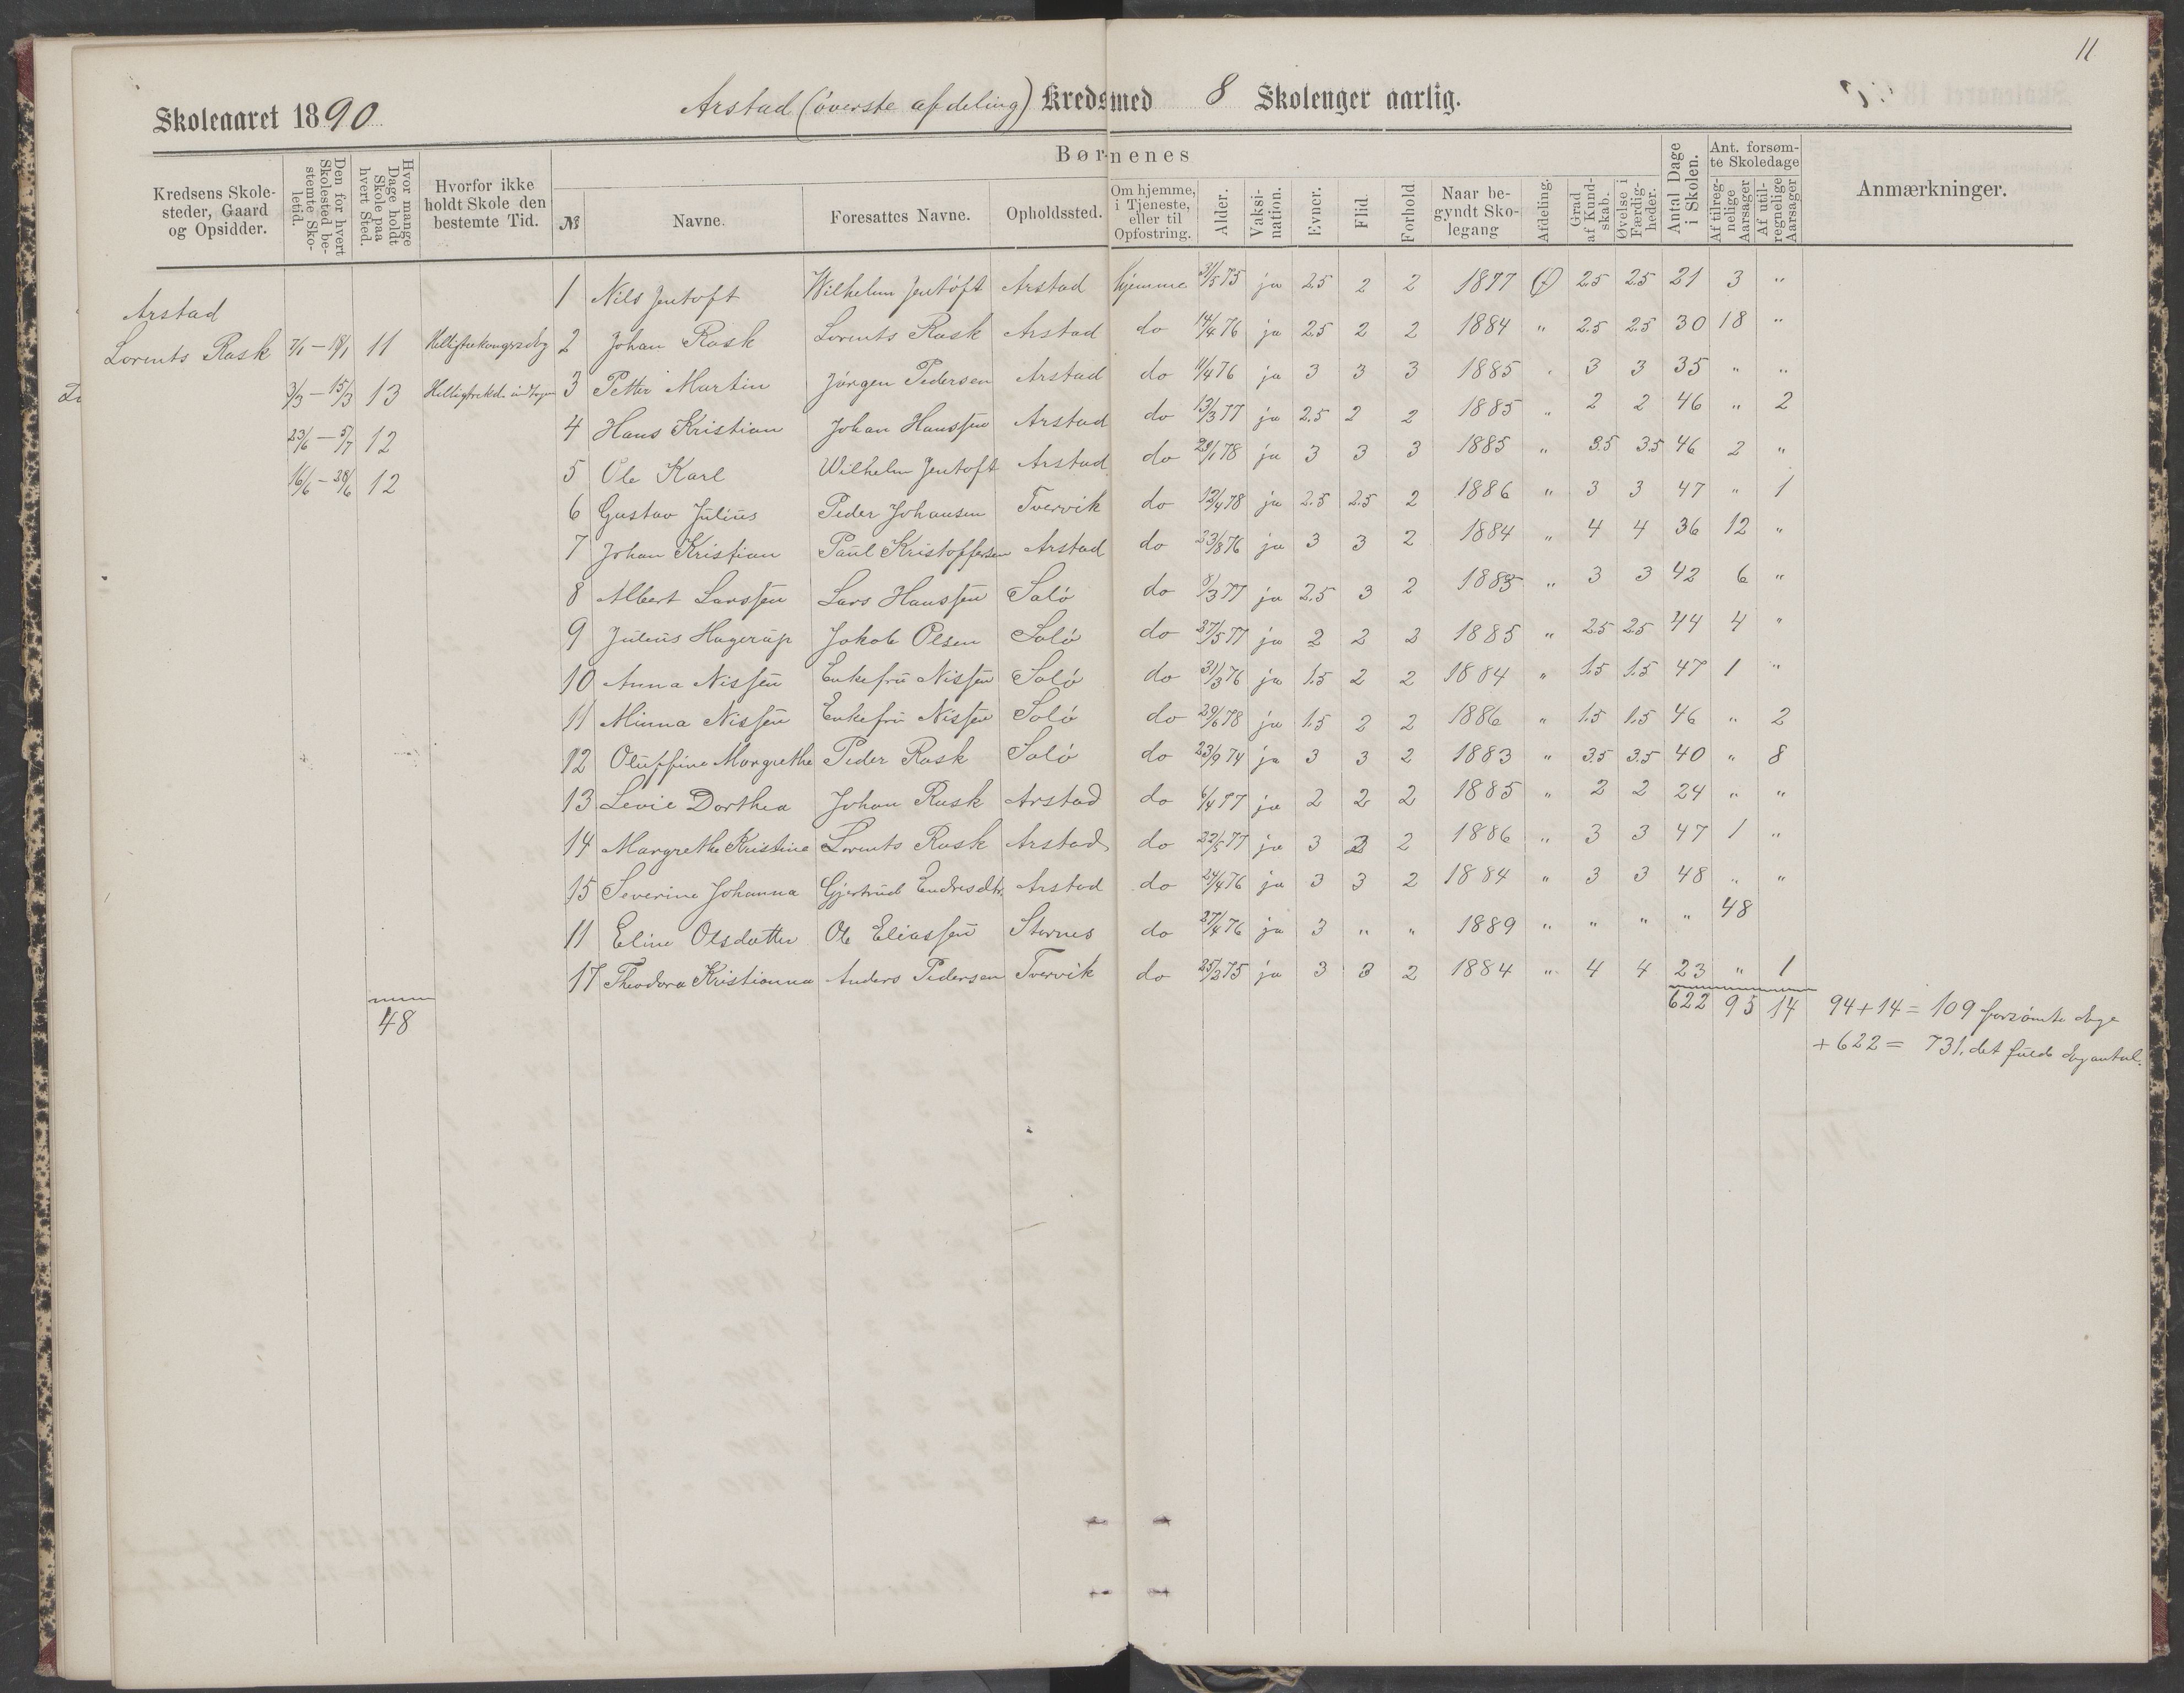 11
Skoleaaret 1890
Arstad (överste afdeling) Kreds med 8 Skolenger aarlig.
Børnenes
Kredsens Skolesteder, Gaard og Opsidder.
Den for hvert Skolested bestemte Skoletid.
Hvor mange Dage holdt Skole paa hvert Sted.
Hvorfor ikke holdt Skole den bestemte Tid.
№
Navne.
Foresattes Navne.
Opholdssted.
Om hjemme, i Tjeneste, eller til Opfostring.
Alder.
Vaksination.
Evner.
Flid.
Forhold
Naar begyndt Skolegang
Afdeling.
Grad af Kundskab.
Øvelse i Færdigheder.
Antal Dage i Skolen.
Ant. forsømte Skoledage
Af tilregnelige Aarsager
Af utilregnelige Aarsager
Anmærkninger.
Arstad
Lorents Rask 7/1 - 18/1 11 Helligtrekongersdag
3/3 - 15/3 13
23/6 - 5/7 12
16/6 - 28/6 12
48
1 Nils Jentoft Wilhelm Jentoft Arstad hjemme 31/5 75 ja 2.5 2 2 1877 Ø 2.5 2.5 21 3 "
2 Johan Rask Lorents Rask Arstad do 14/4 76 ja 2.5 2 2 1884 " 2.5 2.5 30 18 "
3 Petter Martin Jörgen Pedersen Arstad do 11/4 76 ja 3 3 3 1885 " 3 3 35 " "
4 Hans Kristian Johan Hanssen Arstad do 13/3 77 ja 2.5 2 2 1885 " 2 2 46 " 2
5 Ole Karl Wilhelm Jentoft Arstad do 29/1 78 ja 3 3 3 1885 " 3.5 3.5 46 2 "
6 Gustav Julius Peder Johansen Tvervik do 12/4 78 ja 2.5 2.5 2 1886 " 3 3 47 " 1
7 Johan Kristian Paul Kristoffersen Arstad do 23/8 76 ja 3 3 2 1884 " 4 4 36 12 "
8 Albert Larssen Lars Hanssen Salö do 8/3 77 ja 2.5 3 2 1885 " 3 3 42 6 "
9 Julius Hagerup Jakob Olsen Salö do 27/5 77 ja 2 2 2 1885 " 2.5 2.5 44 4 "
10 Anna Nissen Enkefru Nissen Salö do 31/3 76 ja 1.5 2 2 1884 " 1.5 1.5 47 1 "
11 Minna Nissen Enkefru Nissen Salö do 29/6 78 ja 1.5 2 2 1886 " 1.5 1.5 46 " 2
12 Oluffine Margrethe Peder Rask Salö do 23/9 74 ja 3 3 2 1883 " 3.5 3.5 40 " 8
13 Levie Dorthea Johan Rask Arstad do 6/4 77 ja 2 2 2 1885 " 2 2 24 " "
14 Margrethe Kristine Lorents Rask Arstad do 22/5 77 ja 3 3 2 1886 " 3 3 47 1 "
15 Severine Johanna Gjertrud Endresdtr. Arstad do 24/4 76 ja 3 3 2 1884 " 3 3 48 " "
11 Eline Olsdatter Ole Eliassen Stornes do 27/4 76 ja 3 " " 1889 " " " " 48
17 Theodora Kristianna Anders Pedersen Tvervik do 25/2 75 ja 3 3 2 1884 " 4 4 23 " 1
622 95 14 94 + 14 = 109 forsömte dage
+ 622 = 731, det fulde dagantal.